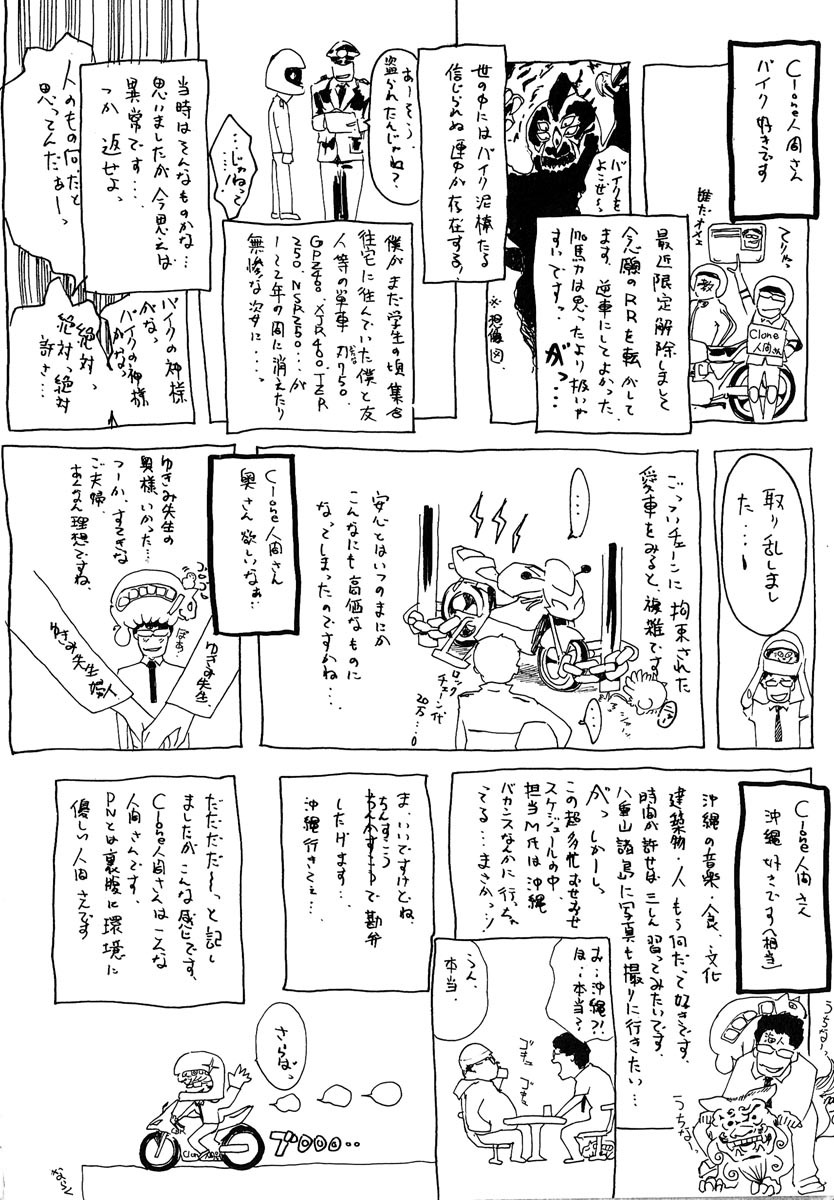 Clone人間さん
バイク好きです
てりゃっ
教
Clone
人間さん
最近限定解除しまして
念願のRRを転がして
ます。逆車にしてよかった。
馬力は思ったより扱いや
すいですっ。
がっ
バイクを
よこせ〜っ
※想像図
世の中にはバイク泥棒たる
信じられぬ連中が存在する!
僕がまだ学生の頃集合
住宅に住んでいた僕と友
人等の単車 刀750、
GPZ400、XJR400、TZR
250、NSR250…が
1〜2年の間に消えたり
無惨な姿に…っ
あーそう、
盗られたんじゃね?
…じゃねって
…
当時はそんなものかな…
思いましたが今思えば
異常です…
つか 返せよっ
人のもの何だと
思ってんだぁーっ
バイクの神様
がなっ
バイクの神様
がなっ
絶対っ
絶対っ絶対
許さ…
取り乱しまし
た…!
ごっついチェーンに拘束された
愛車をみると、複雑です…
…
ロング
チェーン代
20万…!
…
安心とはいつのまにか
こんなにも高価なものに
なってしまったのですかね…
Clone人間さん
奥さん欲しいなぁ…
ゆきみ先生の
奥様、いかった…
つーか、すてきな
ご夫婦、
あんなん理想ですね、
ぽぁ…
ゆきみ先生
ゆきみ先生婦人
Clone人間さん
沖縄好きです(相当)
沖縄の音楽・食、文化
建築物・人もう何だって好きです。
時間が許せば三しん習ってみたいです。
八重山諸島に写真も撮りに行きたい…
がっしかーしっ
この超多忙むせみせ
スケジュールの中、
担当M氏は沖縄
バカンスなんかに行っちゃ
てる…まさかっ!
うちな〜っ
海人
うちな〜
お…沖縄?!
ほ…本当?
うん、
本当。
ま、いいですけどね、
ちんすこうで勘弁
したげます…
沖縄行きてぇ…
だだだだ〜っと記し
ましたがこんな感じです、
Clone人間さんはこんな
人間さんです。
PNとは裏腹に環境に
優しい人間さんです
さらばっ
CBR
Clone
ブ000‥